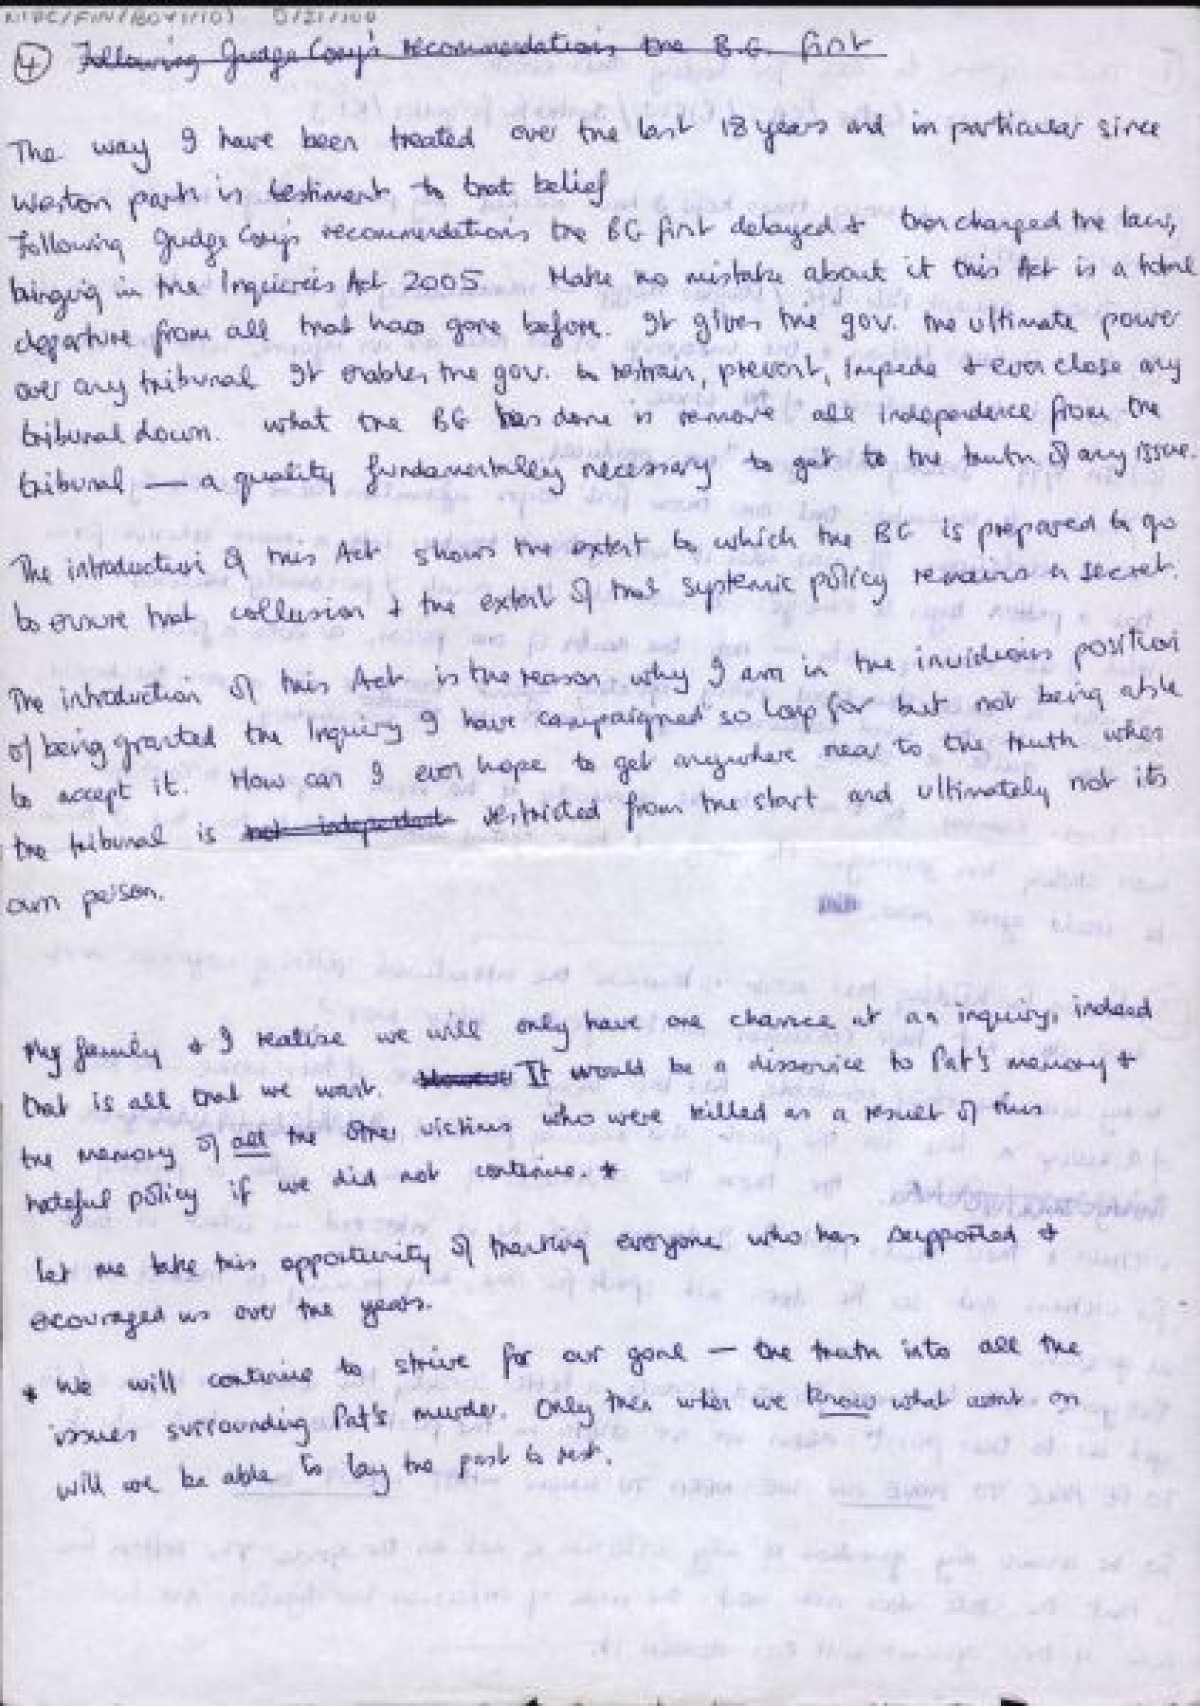 ④ Following Judge Cory's recommendations the B.G. first
The way I have been treated over the last 18 years and in particular since
Weston park is testiment to that belief
Following Judge Cory's recommendations the BG first delayed & then changed the law,
bringing in the Inquiries Act 2005. Make no mistake about it this Act is a total
departure from all that has gone before. It gives the gov. the ultimate power
over any tribunal It enables the gov. to restrain, prevent, impede & even close any
tribunal down. What the BG has done is remove all independence from the
tribunal — a quality fundamentally necessary to get to the truth of any issue.
The introduction of this Act shows the extent to which the BG is prepared to go
to ensure that collusion & the extent of that systemic policy remains a secret.
The introduction of this Act is the reason why I am in the invidious position
of being granted the Inquiry I have campaigned so long for but not being able
to accept it. How can I ever hope to get anywhere near to the truth when
the tribunal is not independent restricted from the start and ultimately not its
own person.
My family & I realise we will only have one chance at an inquiry, indeed
that is all that we want. However It would be a disservice to Pat's memory &
the memory of all the other victims who were killed as a result of this
hateful policy if we did not continue. *
Let me take this opportunity of thanking everyone who has supported &
ecouraged us over the years.
* We will continue to strive for our goal — the truth into all the
issues surrounding Pat's murder. Only then when we know what went on
will we be able to lay the past to rest.